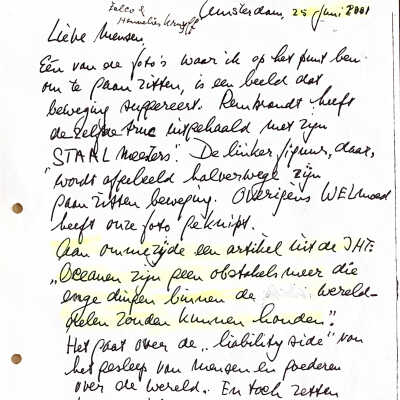 Falco &
Hannelies
Amsterdam, 25 Juni 2001
Lieve Mensen,
Eén van de foto's waar ik op het punt ben
om te gaan zitten, is een beeld dat
beweging suggereert. Rembrandt heeft
dezelfde truc uitgehaald met zijn
"STAALMeesters". De linker figuur, daar,
wordt afgebeeld halverwege zijn
gaan zitten beweging. Overigens WELMOED
heeft onze foto geknipt.
Aan ommezijde een artikel uit de IHT:
"Oceanen zijn geen obstakels meer die
enge dingen binnen de wereld-
delen zouden kunnen houden".
Het gaat over de "liability side" van
het gesleep van mensen en goederen
over de wereld. En toch zetten